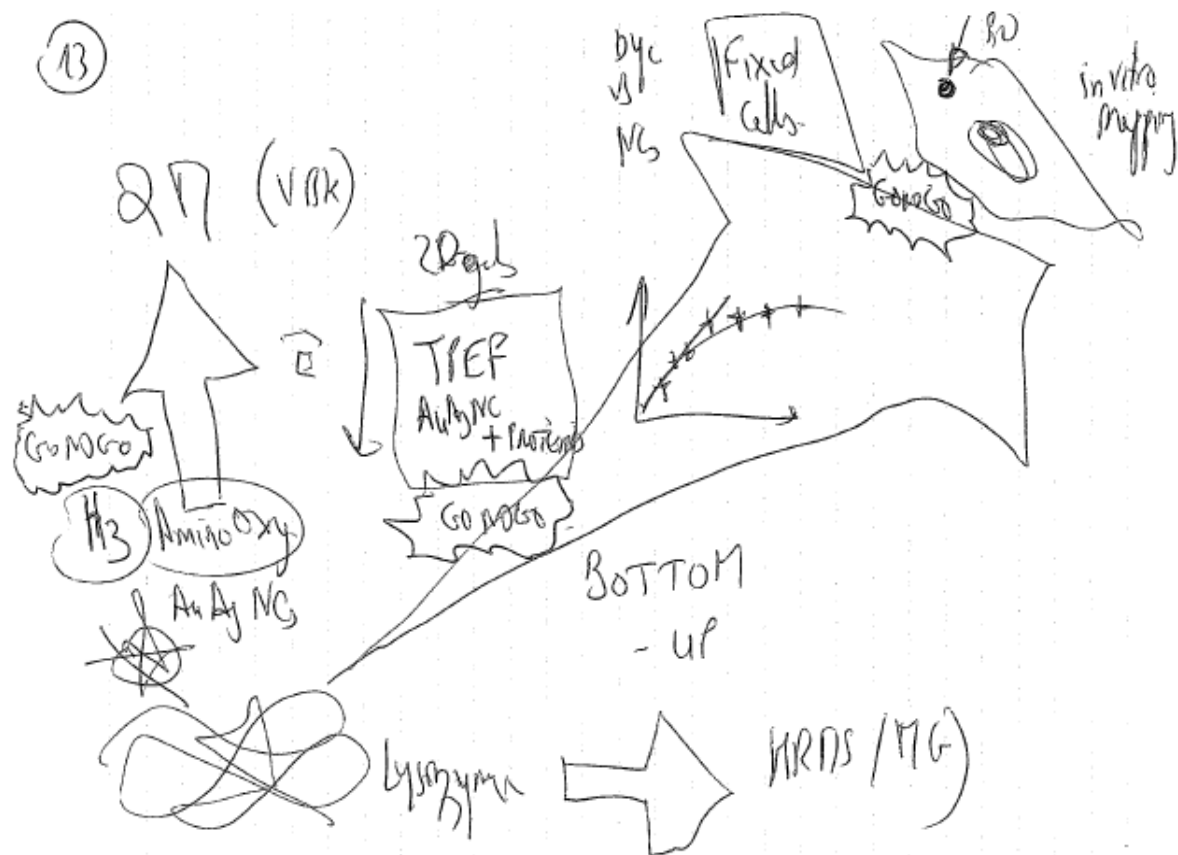 13
Dye
vs
NCs
Fixed
Cells
in vitro
mapping
GONOGO
(VBK)
2D gels
TPEF
AuAgNC
+ Proteins
GONOGO
GONOGO
AminoOxy
AuAg NCs
BOTTOM
- UP
Lysozyme